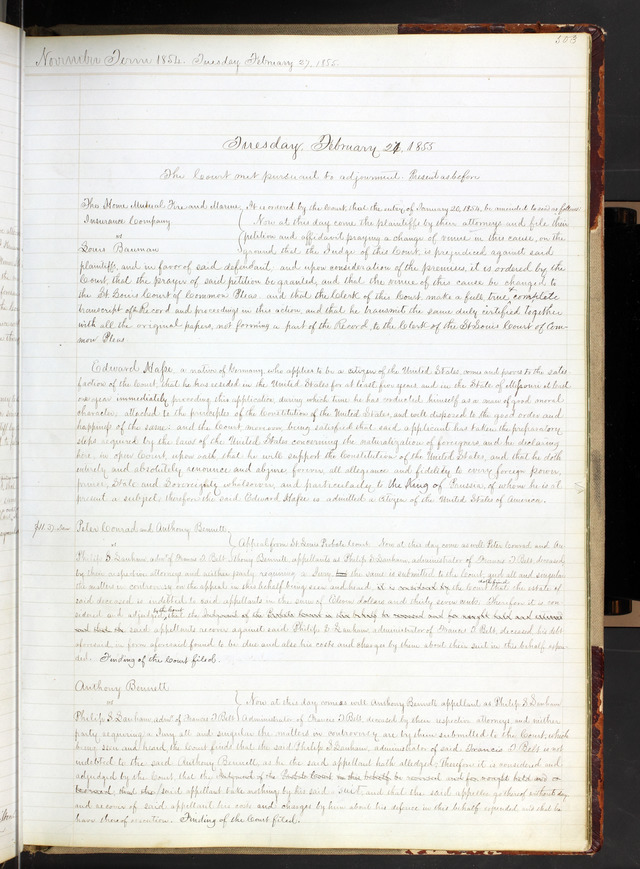 503
November Term 1854. Tuesday February 27, 1855.
Tuesday, February 27, 1855
The Court met pursuant to adjournment. Present as before
The Home Mutual Fire and Marine It is ordered by the Court that the entry of January 20, 1855, be amended to read as follows
Insurance Company Now at this day come the plaintiffs by their attorneys and file their
vs petition and affidavit praying a change of venue in this cause, on the
Louis Bauman ground that the Judge of this Court is prejudiced against said
plaintiffs, and in favor of said defendant, and upon consideration of the premises, it is ordered by the
Court, that the prayer of said petition be granted, and that the venue of this cause be changed to
the St Louis Court of Common Pleas. and that the Clerk of this Court make a full, true & complete
transcript of the Record and proceedings in this action, and that he transmit the same duly certified together
with all the original papers, not forming a part of the Record to the Clerk of the St Louis Court of Com-
mon Pleas.
Edward Hafse, a native of Germany, who applies to be a citizen of the United States, comes and proves to the satis
faction of the Court, that he has resided in the United States for at least five years and in the State of Missouri at least
one year immediately preceding this application, during which time he has conducted himself as a man of good moral
character, attached to the principles of the Constitution of the United States, and well disposed to the good order and
happiness of the same; and the Court moreover being satisfied that said applicant has taken the preparatory
steps required by the laws of the United States concerning the naturalization of foreigners, and he declaring
here, in open Court, upon oath, that he will support the Constitution of the United States, and that he doth
entirely and absolutely renounce and abjure forever, all allegiance and fidelity to every foreign power,
prince, State and Sovereignty whatsoever, and particularly to the King of Prussia, of whom he is at
present a subject, therefore the said Edward Hafse is admitted a citizen of the United States of America.
Peter Conrad and Anthony Bennett,
vs Appeal from St Louis Probate Court. Now at this day come as well Peter Conrad and An
Philip S Lanham admr of Francis T Belt thony Bennett, appellants as Philip S Lanham, administrator of Francis T Belt, deceased,
by their respective attorneys and neither party requiring a Jury the same is submitted to the Court, and all and singular
the matters in controversy on the appeal in this behalf being seen and heard, the Court that the estate of
said deceased is indebted to said appellants in the sum of dollars and thirty seven cents. Therefore it is con-
sidered and adjudged by the Court that the Judgment of the Probate Court in this behalf be reversed and for nought held and esteemed
and that the said appellants recover against said Philip S Lanham administrator of Francis T Belt, deceased his debt
aforesaid in form aforesaid found to be due and also his costs and charges by them about their suit in this behalf expen-
ded. Finding of the Court filed.
Anthony Bennett
vs Now at this day comes as well Anthony Bennett appellant as Philip S Lanham
Philip S Lanham, admr of Francis T Belt Administrator of Francis T Belt, deceased by their respective attorneys, and neither
party requiring a Jury all and singular the matters in controversy are by them submitted to the Court, which
being seen and heard, the Court finds that the said Philip S Lanham, administrator of said Francis T Belt is not
indebted to the said Anthony Bennett, as he the said appellant hath alledged; therefore it is considered and
adjudged by the Court that the Judgment of the Probate Court in this behalf be reversed and for nought held and
esteemed, that the said appellant take nothing by his said suit and that the said appellee go thereof without day
and recover of said appellant his costs and charges by him about his defence in this behalf expended and that he
have thereof execution. Finding of the Court filed.